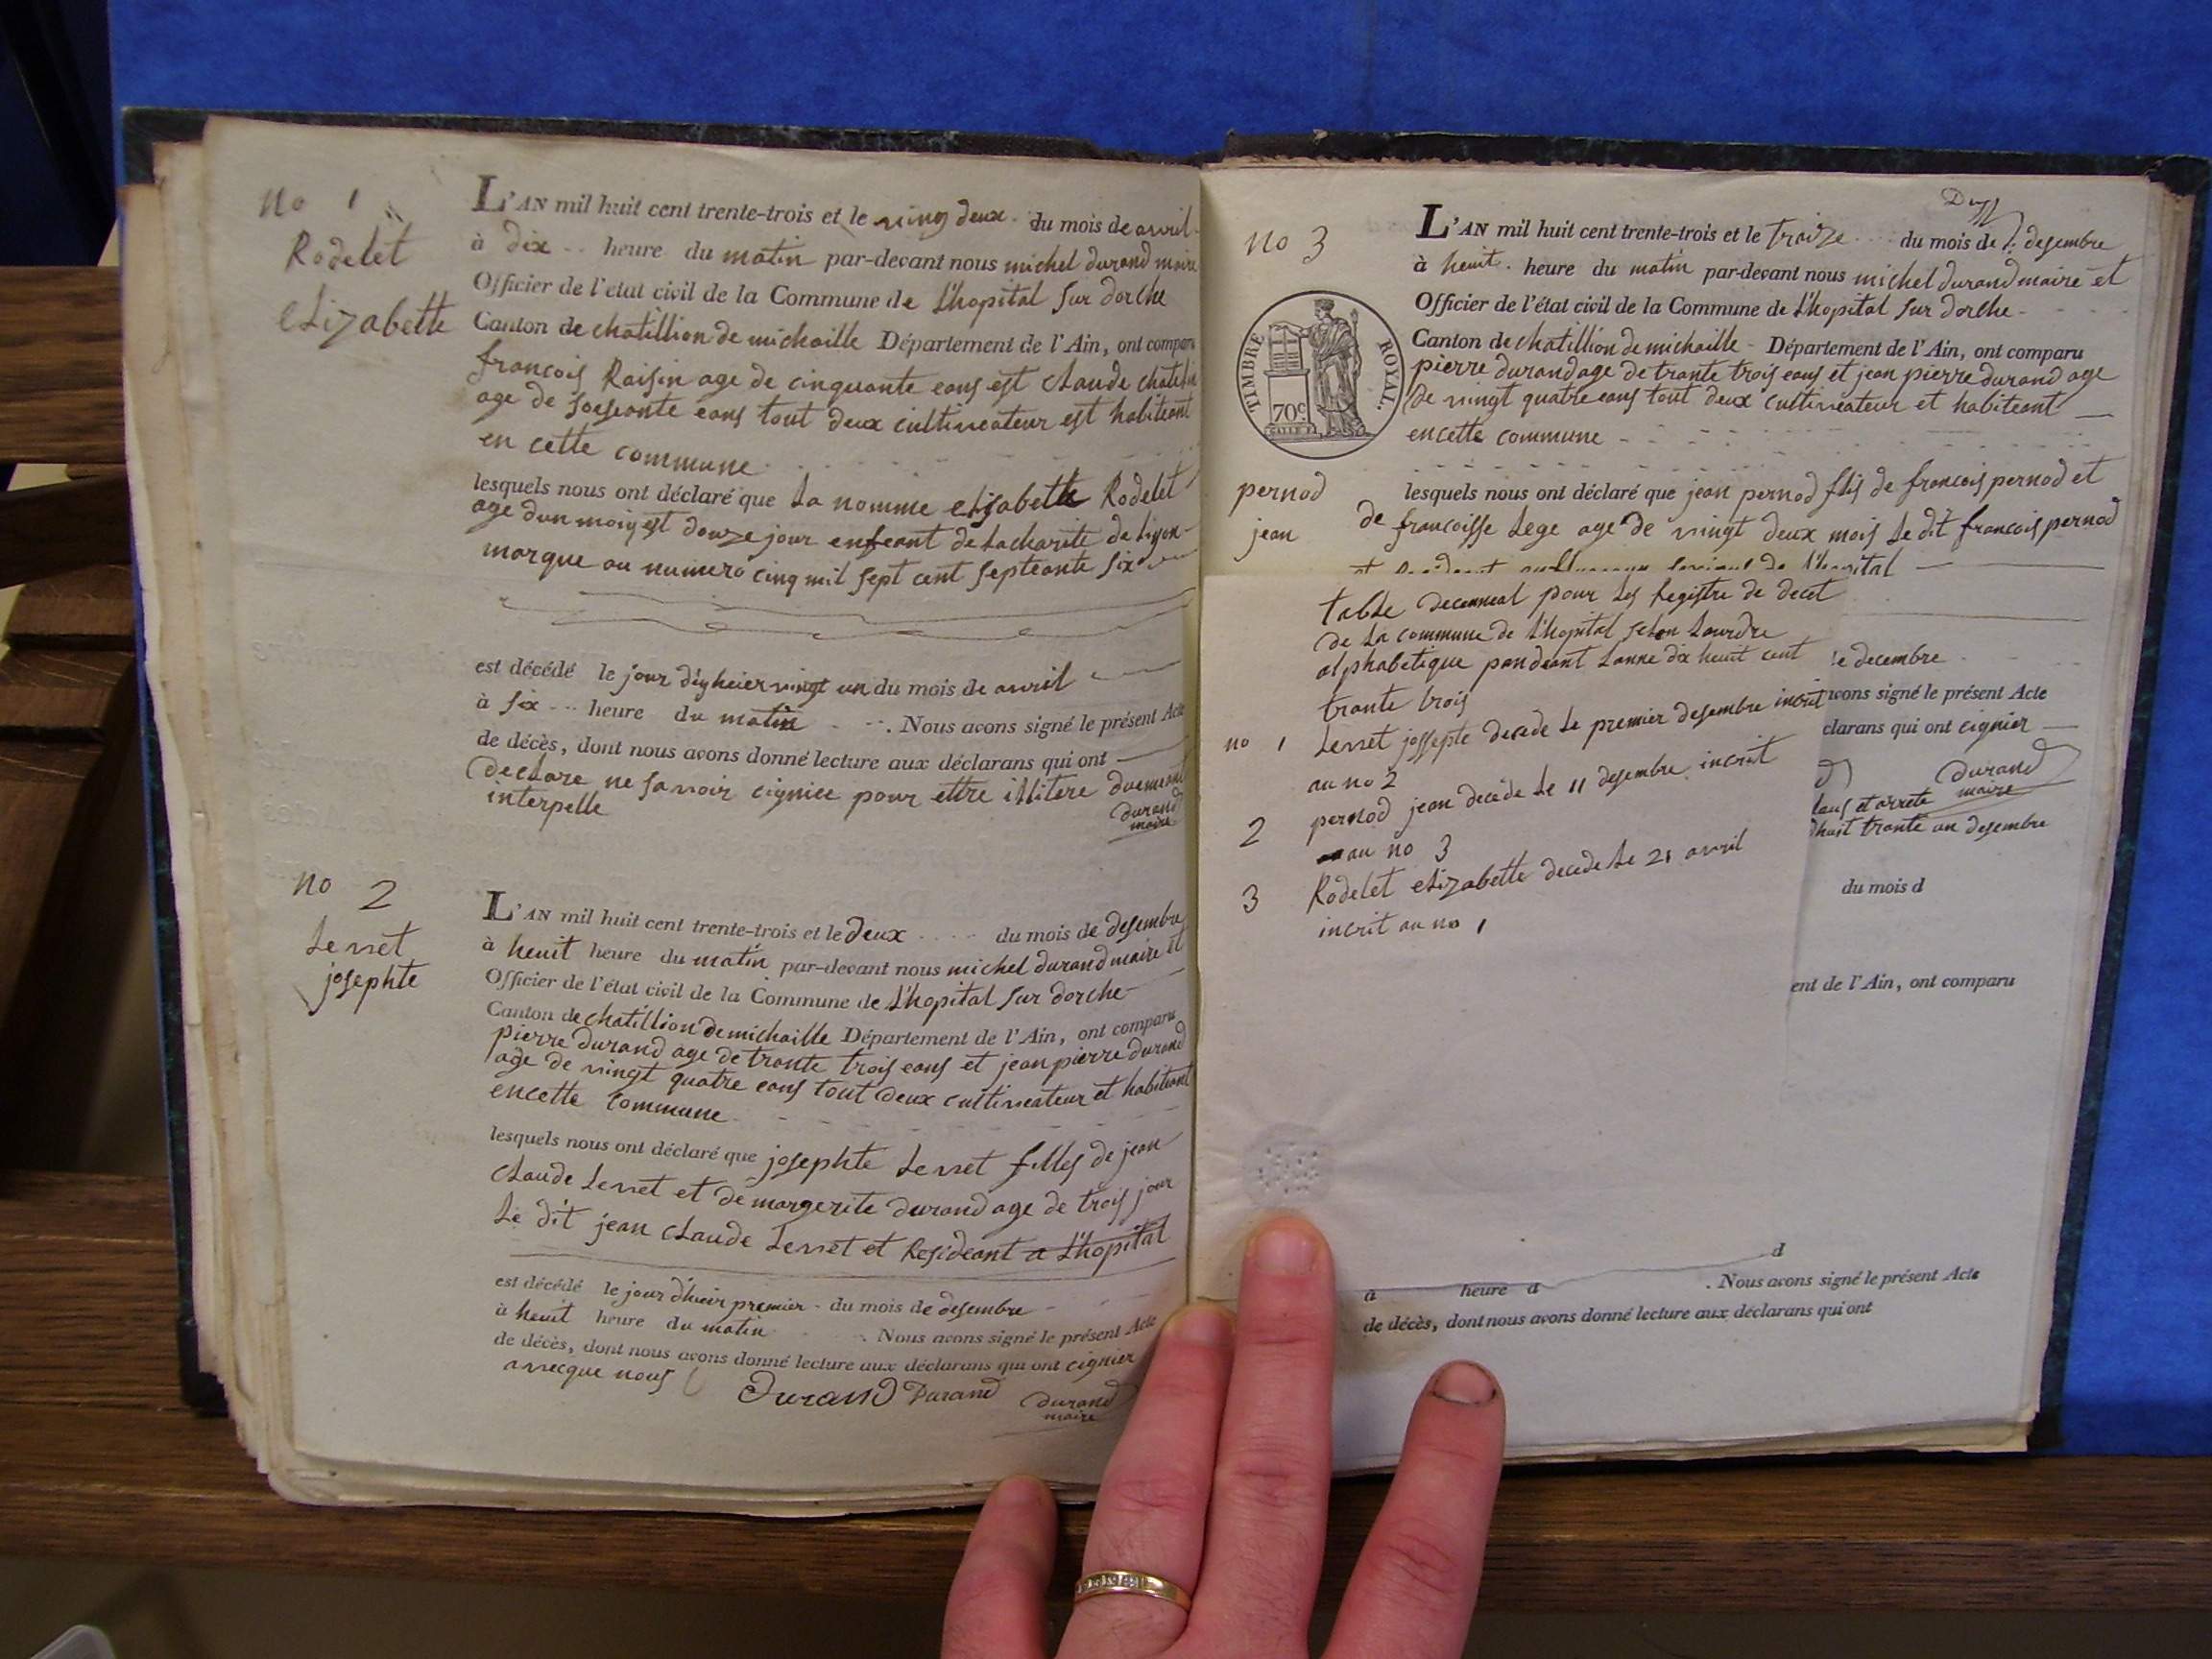 no 1
Rodelet
elizabette
L'AN mil huit cent trente-trois et le ving deux du mois de avril
à dix heure du matin par-devant nous michel durand maire
Officier de l'état civil de la Commune de L'hopital sur dorche
Canton de chatillion de michaille Département de l'Ain, ont comparu
francois Raisin age de cinquante eans est claude
age de soessante eans tout deux cultiveateur est habiteant
en cette commune
lesquels nous ont déclaré que La nomme elisabette Rodelet
age dun moiy est douze jour enfeant de Lacharite de Liyon
marque au numero cinq mil sept cent septeante six
est décédé le jour dhyheier vingt un du mois de avril
à six heure du matin . Nous avons signé le présent Acte
de décès, dont nous avons donné lecture aux déclarans qui ont
declare ne savoir cignier pour ettre illitere duement
interpelle
durand
maire
no 2
Levret
josephte
L'AN mil huit cent trente-trois et le deux du mois de desembre
à heuit heure du matin par-devant nous michel durand maire et
Officier de l'état civil de la Commune de L'hopital sur dorche
Canton de chatillion de michaille Département de l'Ain, ont comparu
pierre durand age de trante trois eans et jean pierre durand
age de vingt quatre eans tout deux cultiveateur et habiteant
encette commune
lesquels nous ont déclaré que josephte Levret filles de jean
claude Levret et de margerite durand age de trois jour
Le dit jean claude Levret et Resideant a L'hopital
est décédé le jour d'hieir premier du mois de desembre
à heuit heure du matin . Nous avons signé le présent Acte
de décès, dont nous avons donné lecture aux déclarans qui ont cignier
avecque nous
Durand Durand durand
maire
no 3
L'AN mil huit cent trente-trois et le traize du mois de desembre
à heuit heure du matin par-devant nous michel durand maire et
Officier de l'état civil de la Commune de L'hopital sur dorche
Canton de chatillion de michaille Département de l'Ain, ont comparu
pierre durand age de trante trois eans et jean pierre durand age
de vingt quatre eans tout deux cultiveateur et habiteant
encette commune
TIMBRE ROYAL.
70c
pernod
jean
lesquels nous ont déclaré que jean pernod fils de francois pernod et
de francoisse Lege age de vingt deux mois Le dit francois pernod
de L'hopital
table decenneal pour Les Registre de decet
de La commune de L'hopital selon Lourdre
alphabetique pandeant Lanne dix heuit cent
trante trois
no 1 Levret jossepte decede Le premier desembre incrit
au no 2
2 pernod jean decede Le 11 desembre incrit
au no 3
3 Rodelet elizabette decede Le 21 avril
incrit au no 1
le decembre
avons signé le présent Acte
clarans qui ont cignier
durand
maire
et arrete
trante un desembre
du mois d
ent de l'Ain, ont comparu
d
à heure d . Nous avons signé le présent Acte
de décès, dont nous avons donné lecture aux déclarans qui ont